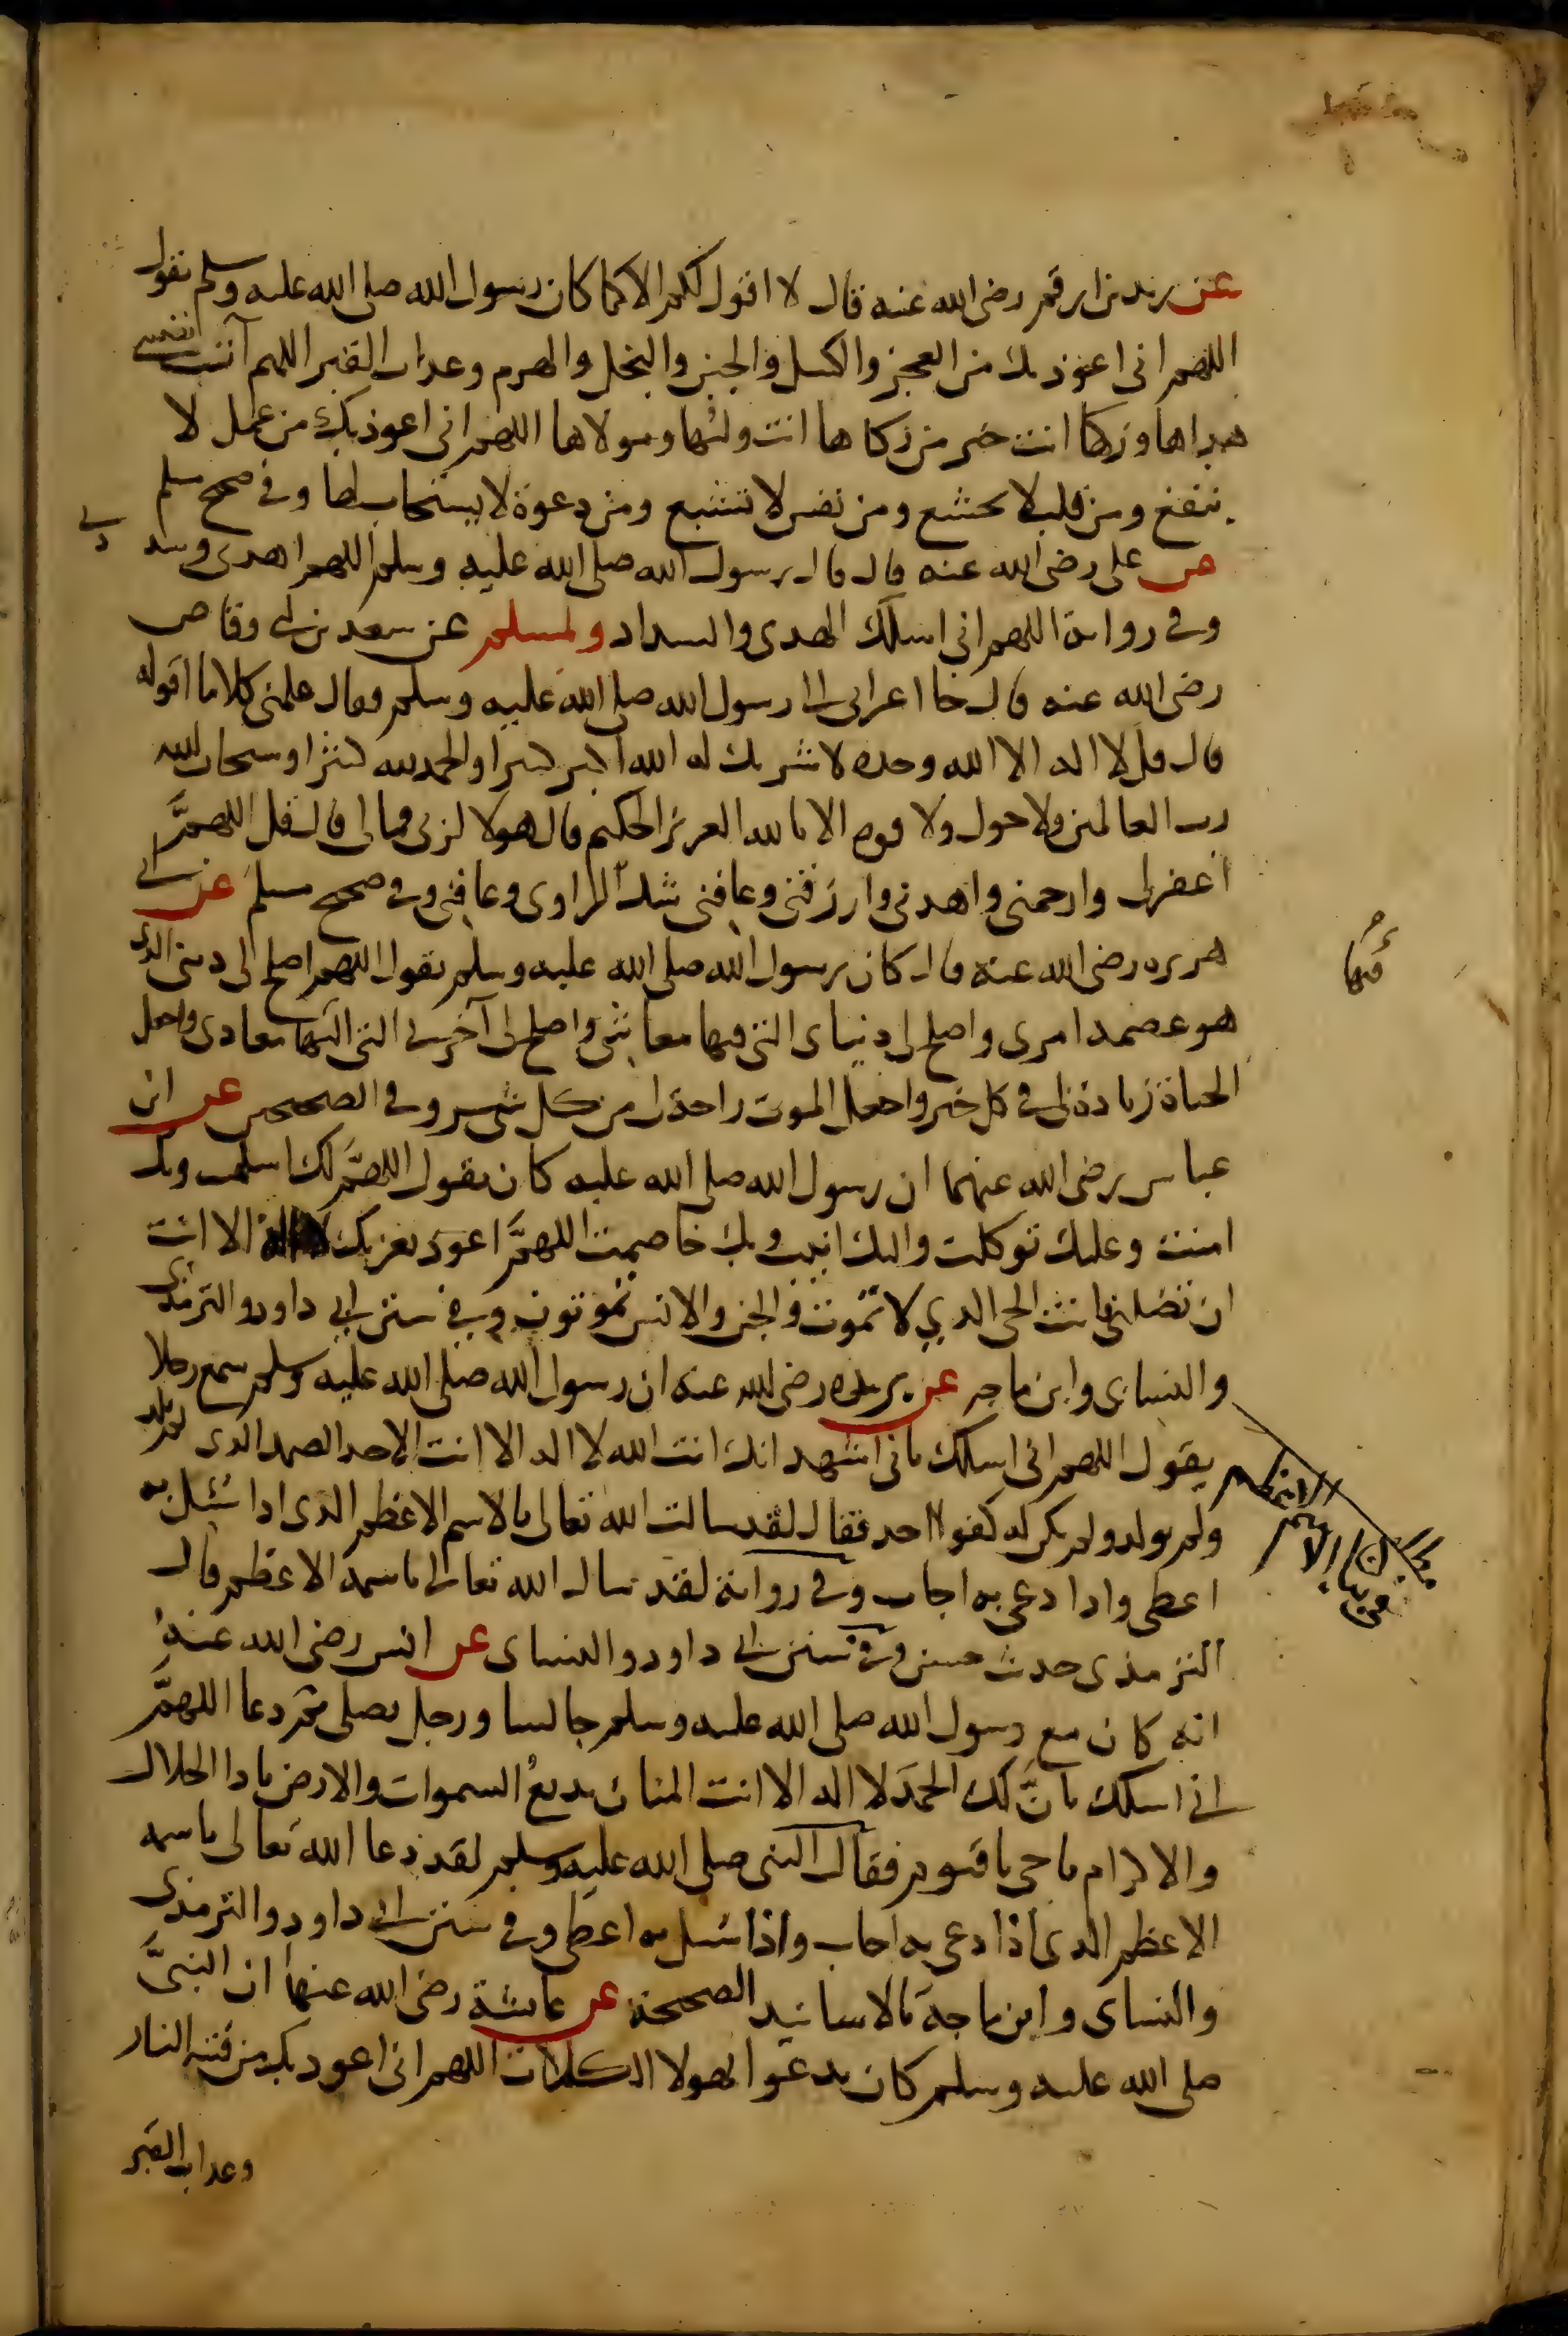 عن زيد بن ارقم رضى الله عنه قال لا اقول لكم الا كما كان رسول الله صلى الله عليه وسلم يقول
اللهم انى اعوذ بك من العجز والكسل والجبن والبخل والهرم وعذاب القبر اللهم آت نفسى
هداها وزكها انت خير من زكاها انت وليها ومولاها اللهم انى اعوذ بك من عمل لا
ينفع ومن قلب لا يخشع ومن نفس لا تشبع ومن دعوة لا يستجاب لها وفى صحيح مسلم
عن على رضى الله عنه قال قال رسول الله صلى الله عليه وسلم اللهم اهدنى وسددنى
وفى رواية اللهم انى اسلك الهدى والسداد ولمسلم عن سعد بن ابى وقاص
رضى الله عنه قال جا اعرابى الى رسول الله صلى الله عليه وسلم وقال علمنى كلاما اقوله
قال قل لا اله الا الله وحده لا شريك له الله اكبر كبيرا والحمد لله كثيرا وسبحان الله
رب العالمين ولا حول ولا قوة الا بالله العزيز الحكيم قال هولا لربى فما لى قال قل اللهم
اغفر لى وارحمنى واهدنى وارزقنى وعافنى شك الراوى وعافنى وفى صحيح مسلم عن ابى
هريره رضى الله عنه قال كان رسول الله صلى الله عليه وسلم يقول اللهم اصلح لى دينى الذى
هو عصمة امرى واصلح لى دنياى التى فيها معاشى واصلح لى آخرتى التى اليها معادى واجعل
فيها
الحياة زيادة لى فى كل خير واجعل الموت راحة لى من كل شر وفى الصحيحين عن ابن
عباس رضى الله عنهما ان رسول الله صلى الله عليه كان يقول اللهم لك اسلمت وبك
امنت وعليك توكلت واليك انبت وبك خاصمت اللهم اعوذ بعزتك لا اله الا انت
ان تضلنى انت الحى الذي لا تموت والجن والانس يموتون وفى سنن ابى داود والترمذى
والنساى وابن ماجه عن بريده رضى الله عنه ان رسول الله صلى الله عليه وسلم سمع رجلا
يقول اللهم انى اسلك بانى اشهد انك انت الله لا اله الا انت الاحد الصمد الذى لم يلد
ولم يولد ولم يكن له كفوا احد فقال لقد سالت الله تعالى بالاسم الاعظم الذى اذا سئل به
اعطى واذا دعى به اجاب وفى رواية لقد سال الله تعالى باسمه الاعظم قال
الترمذى حديث حسن وفى سنن ابى داود والنساى عن انس رضى الله عنه
انه كان مع رسول الله صلى الله عليه وسلم جالسا ورجل يصلى ثم دعا اللهم
انى اسلك بان لك الحمد لا اله الا انت المنان بديع السموات والارض يا ذا الجلال
والاكرام يا حى يا قيوم فقال النبى صلى الله عليه وسلم لقد دعا الله تعالى باسمه
الاعظم الذى اذا دعى به اجاب واذا سئل به اعطى وفى سنن ابى داود والترمذى
والنساى وابن ماجه بالاسانيد الصحيحة عن عائشة رضى الله عنها ان النبى
صلى الله عليه وسلم كان يدعوا بهولا الكلمات اللهم انى اعوذ بك من فتنة النار
وعذاب القبر